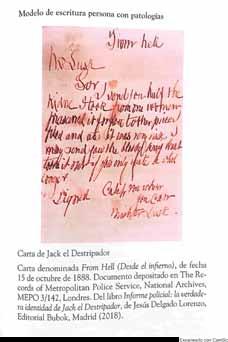 Modelo de escritura persona con patologías
From hell
Mr Lusk
Sor
I send you half the
Kidne I took from one women
prasarved it for you tother piece I
fried and ate it was very nise I
may send you the bloody knif that
took it out if you only wate a whil
longer
signed
Catch me when
you can
Mishter Lusk
Carta de Jack el Destripador
Carta denominada From Hell (Desde el infierno), de fecha
15 de octubre de 1888. Documento depositado en The Re-
cords of Metropolitan Police Service, National Archives,
MEPO 3/142, Londres. Del libro Informe policial: la verdade-
ra identidad de Jack el Destripador, de Jesús Delgado Lorenzo,
Editorial Bubok, Madrid (2018).
Escaneado con CamSc